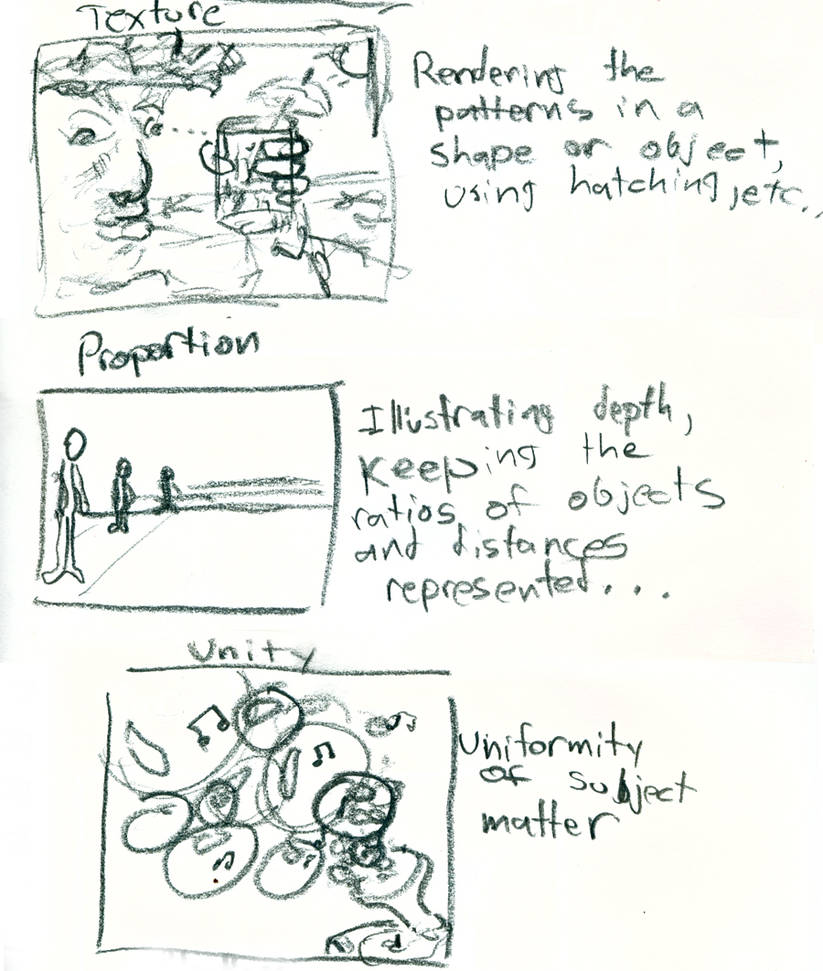 Texture
Rendering the
patterns in a
shape or object,
using hatching, etc..,
Proportion
Illustrating depth,
keeping the
ratios of objects
and distances
represented...
Unity
Uniformity
of subject
matter